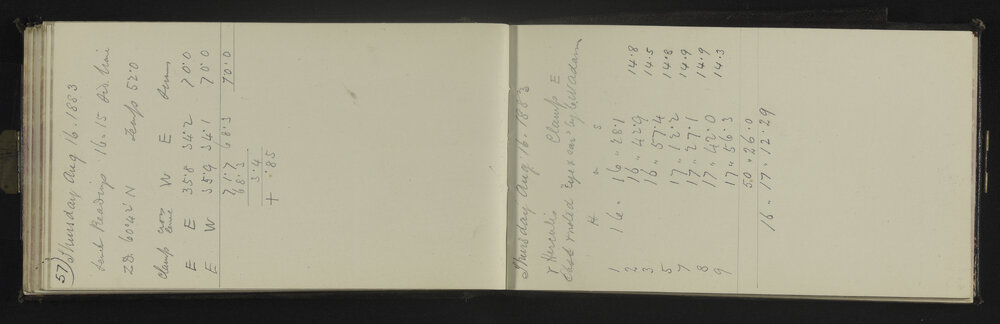 57) Thursday Aug 16. 1883
Level Readings 16.15 Sid. time
ZD. 60°42' N Temp 52.0
Clamp W E Sum
E E 35.8 34.2 70.0
E W 35.9 34.1 70.0
71.7 68.3 70.0
68.3
3.4
+ .85
Thursday Aug. 16. 1883
γ Herculis Clamp E
Clock noted "eye & ear" by McAdam
H m s
1 16 " 16 " 28.1
2 16 " 42.9 14.8
3 16 " 57.4 14.5
5 17 " 12.2 14.8
7 17 " 27.1 14.9
8 17 " 42.0 14.9
9 17 " 56.3 14.3
50 " 26.0
16 " 17 " 12.29